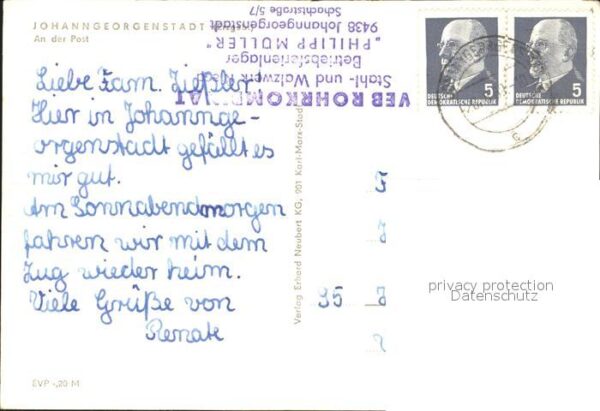 JOHANNGEORGENSTADT
An der Post
VEB ROHRKOMBINAT
Stahl- und Walzwerk
Betriebsferienlager
"PHILIPP MÜLLER"
9438 Johanngeorgenstadt
Schulstraße 5/7
5 5
DEUTSCHE DEUTSCHE
DEMOKRATISCHE REPUBLIK DEMOKRATISCHE REPUBLIK
Liebe Fam. Zießler!
Hier in Johannge-
orgenstadt gefällt es
mir gut.
Am Sonnabendmorgen
fahren wir mit dem
Zug wieder heim.
Viele Grüße von
Renate
Verlag Erhard Neubert KG, 901 Karl-Marx-Stadt
95
privacy protection
Datenschutz
EVP -,20 M